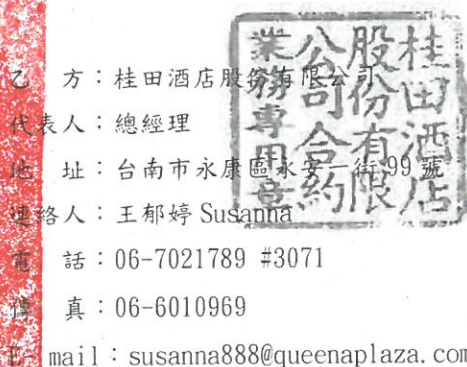 乙　方：桂田酒店股份有限公司
代表人：總經理
地　址：台南市永康區永安一街99號
連絡人：王郁婷 Susanna
電　話：06-7021789 #3071
傳　真：06-6010969
E- mail：susanna888@queenaplaza.com
桂田酒店
股份有限
公司合約
業務專用章